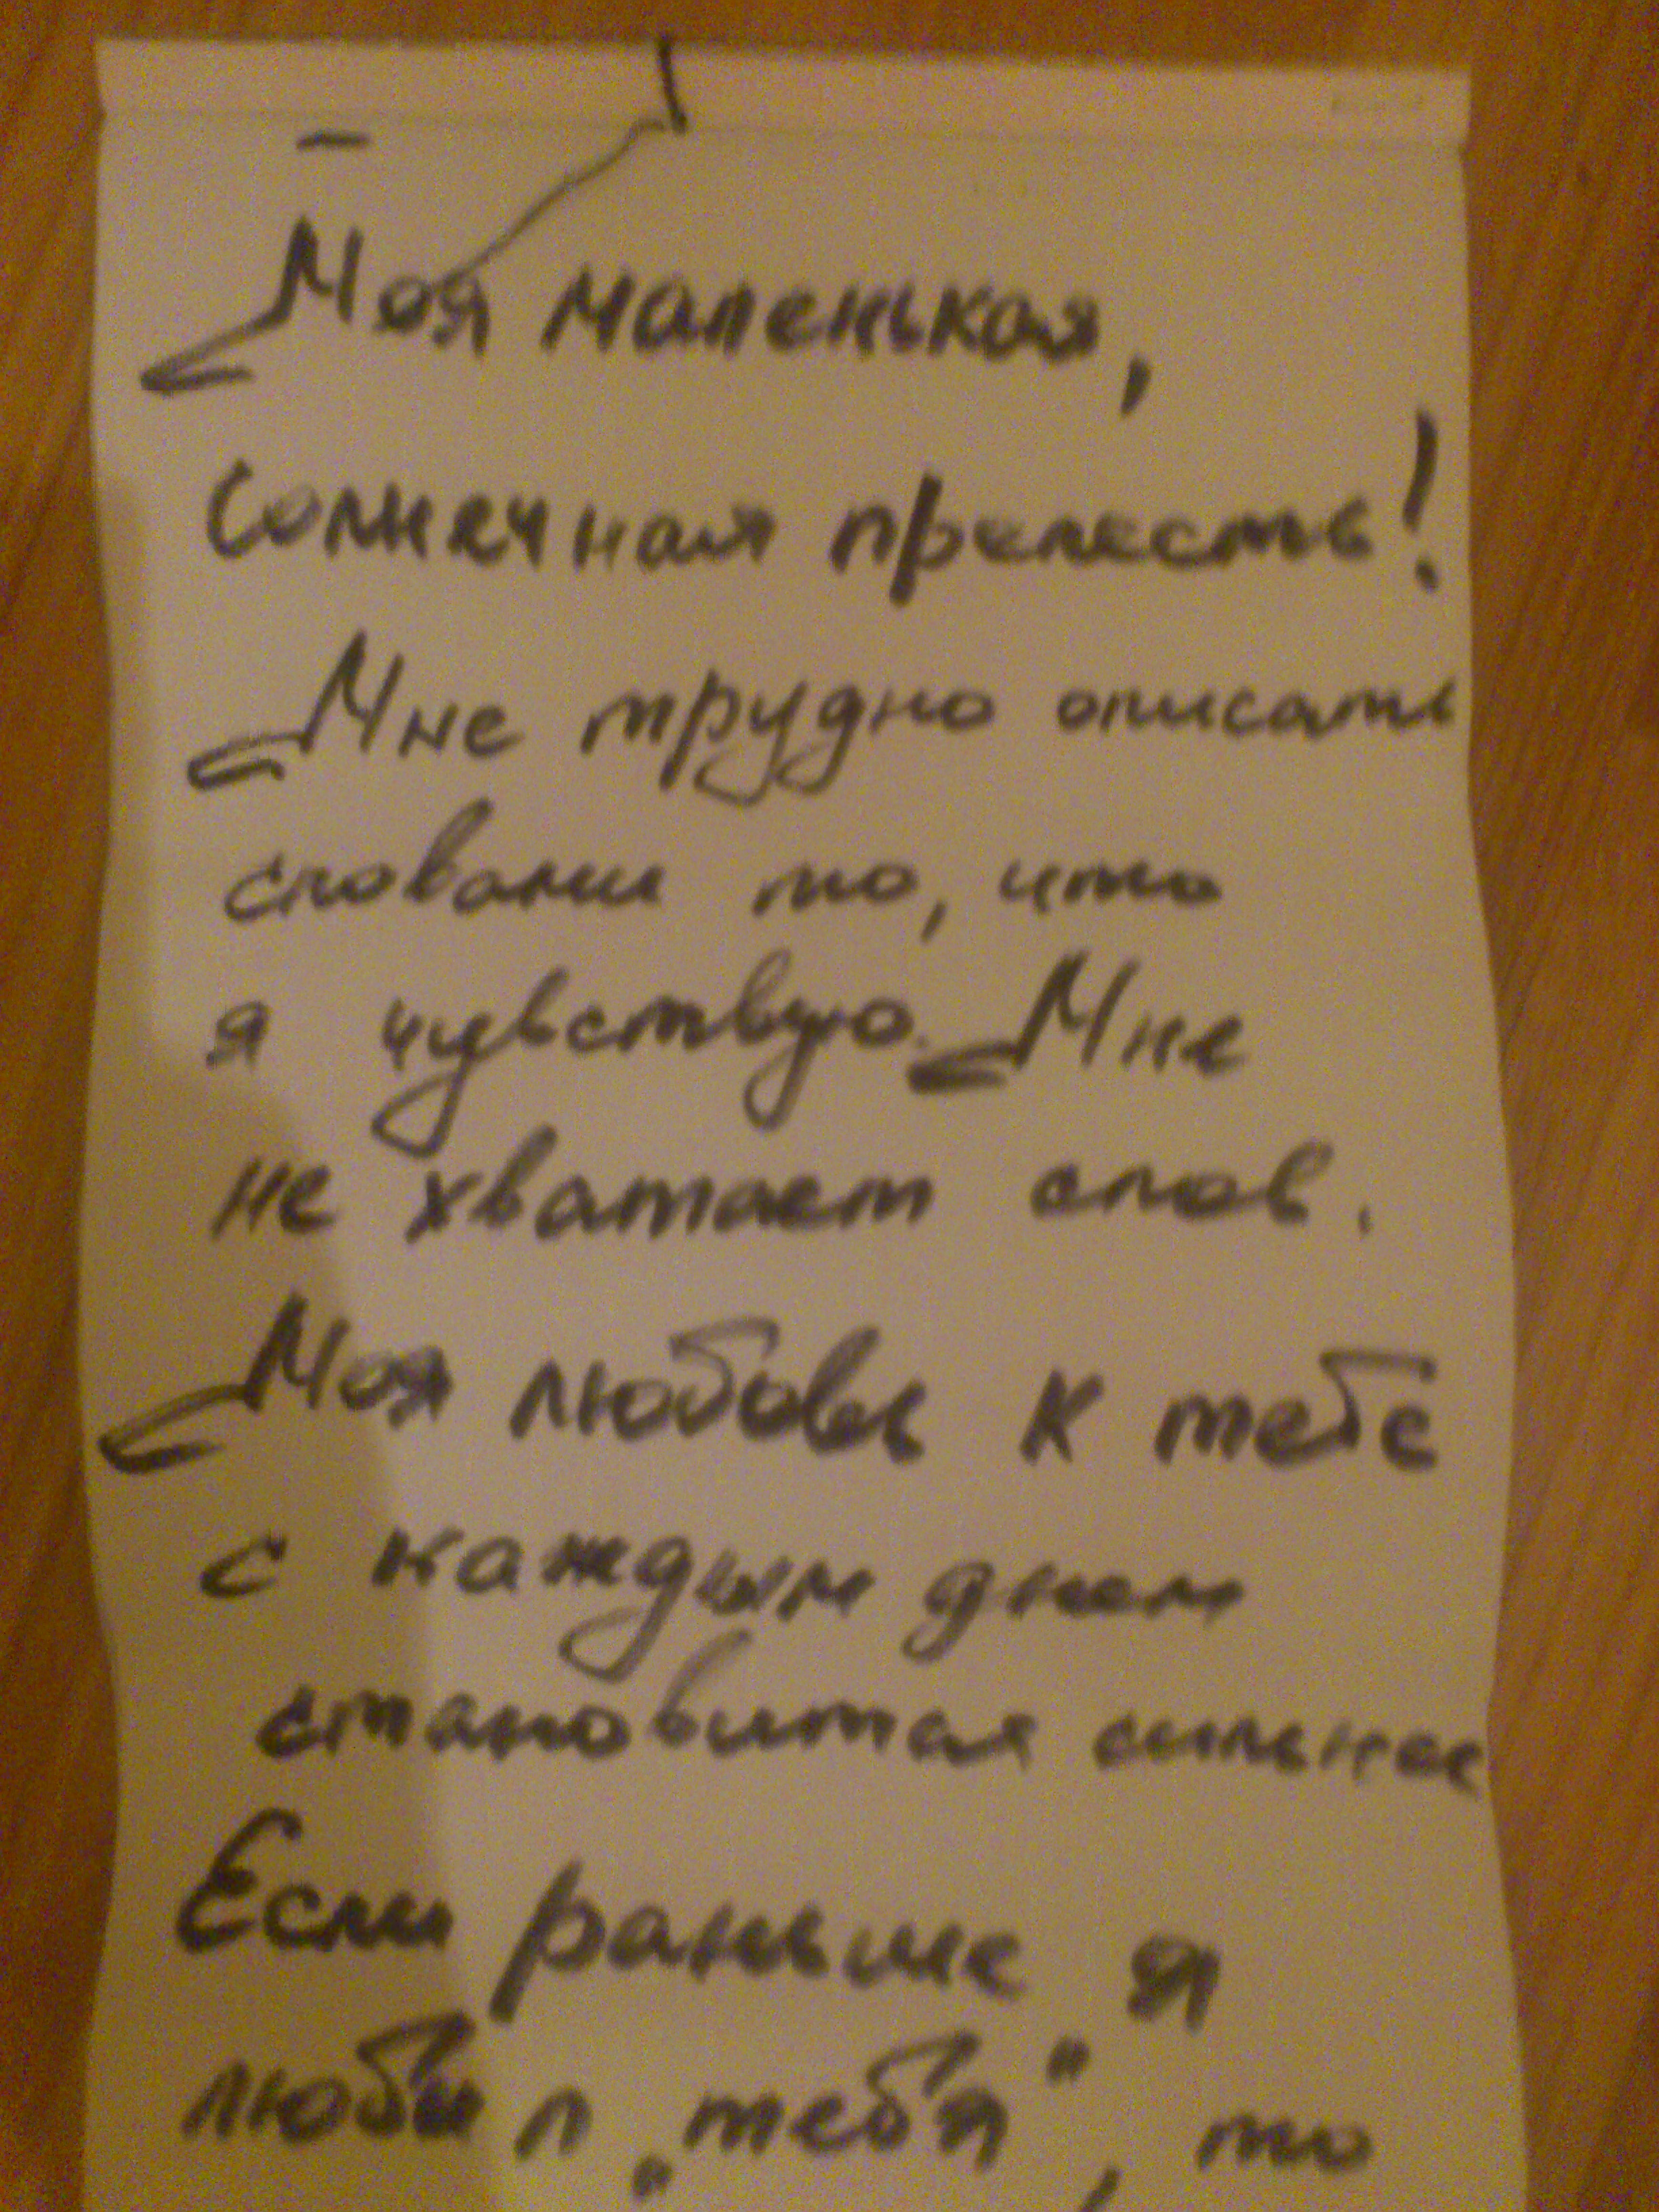 Моя маленькая,
Солнечная прелесть!
Мне трудно описать
словами то, что
я чувствую. Мне
не хватает слов.
Моя любовь к тебе
с каждым днем
становится сильнее
Если раньше я
любил „тебя", то